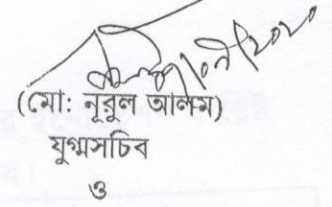 (মো: নূরুল আলম)
যুগ্মসচিব
ও